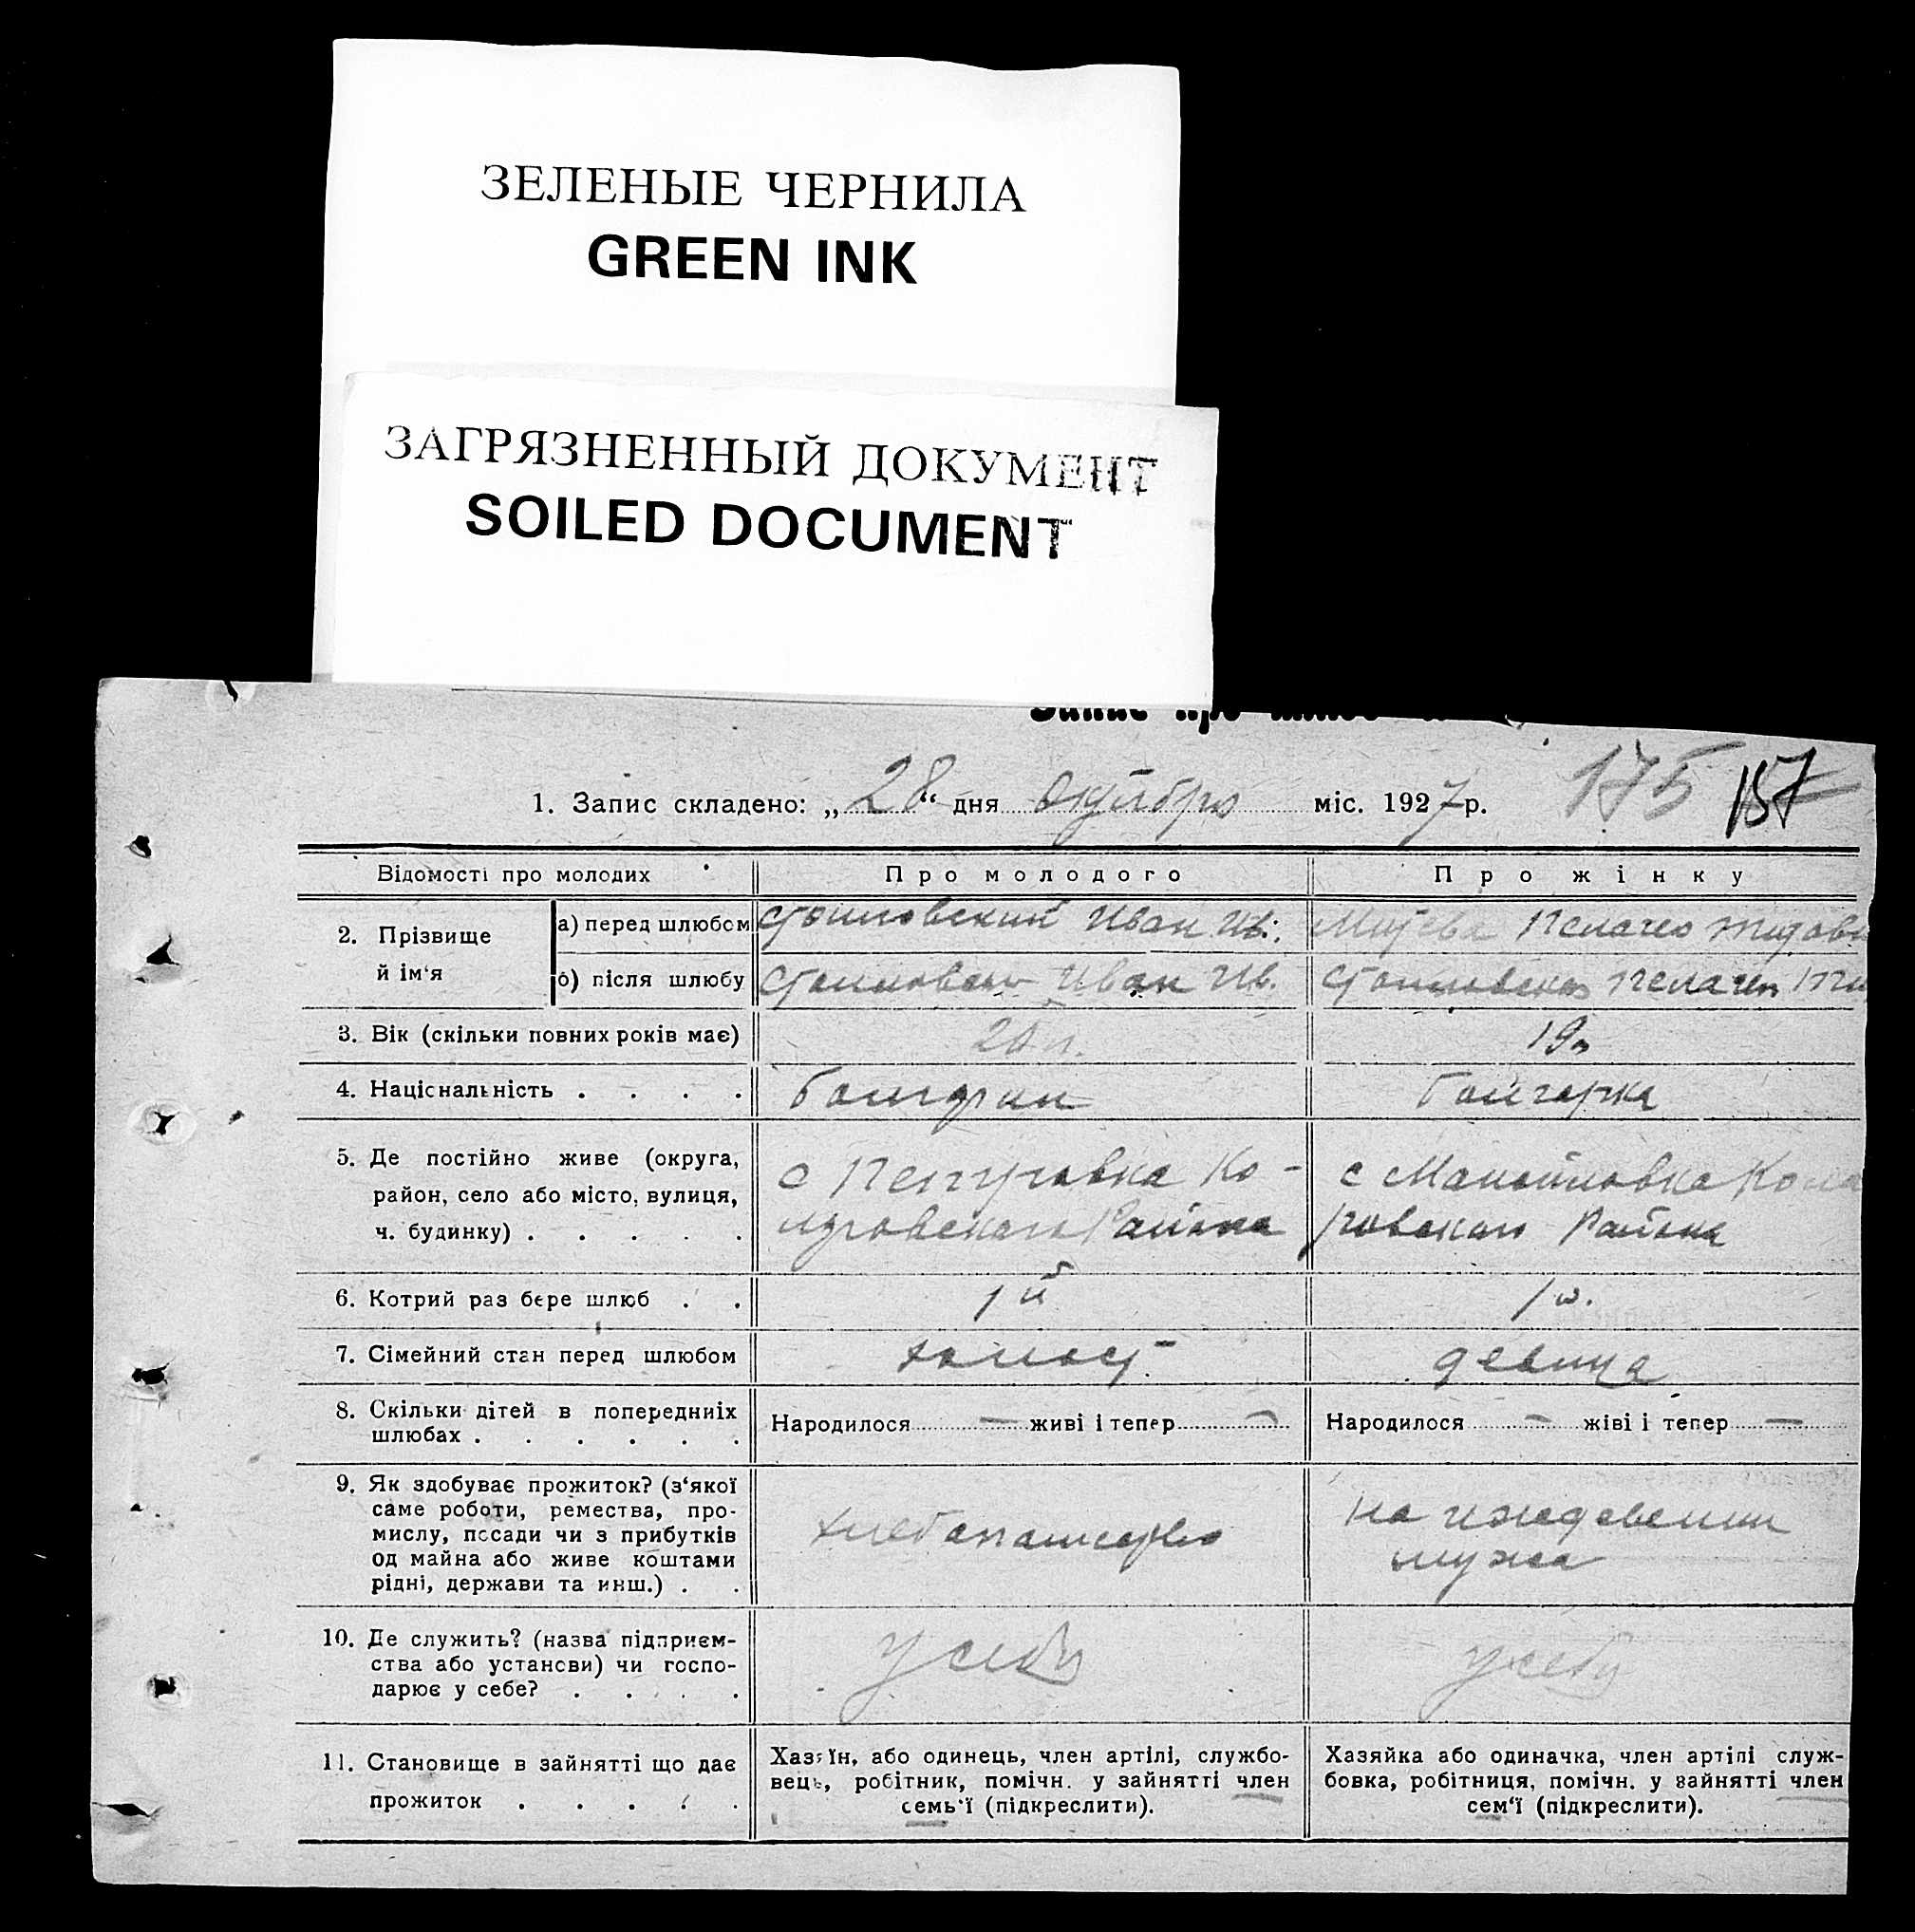 ЗЕЛЕНЫЕ ЧЕРНИЛА
GREEN INK
ЗАГРЯЗНЕННЫЙ ДОКУМЕНТ
SOILED DOCUMENT
Запис про шлюб
175 157
1. Запис складено: „28“ дня октября міс. 1927 р.
Відомості про молодих
Про молодого
Про жінку
2. Прізвище й ім‘я
а) перед шлюбом
Иван Ив.
б) після шлюбу
Иван Ив.
3. Вік (скільки повних років має)
20 л.
19 л
4. Національність . . . .
болгарин
болгарка
5. Де постійно живе (округа,
район, село або місто, вулиця,
ч. будинку) . . . . .
с Петровка Ко-
ларовского Района
с Манойловка Кола
ровского Района
6. Котрий раз бере шлюб . .
1й
1й.
7. Сімейний стан перед шлюбом
холост
девица
8. Скільки дітей в попередниіх
шлюбах . . . . . .
Народилося — живі і тепер —
Народилося — жіві і тепер —
9. Як здобуває прожиток? (з‘якої
саме роботи, ремества, про-
мислу, посади чи з прибутків
од майна або живе коштами
рідні, держави та инш.) . .
хлебопашество
на иждевении
мужа
10. Де служить? (назва підприєм-
ства або установи) чи госпо-
дарює у себе? . . . .
у себя
у себя
11. Становище в зайнятті що дає
прожиток . . . . .
Хазяїн, або одинець, член артілі, службо-
вець, робітник, помічн. у зайнятті член
семь‘ї (підкреслити).
Хазяйка або одиначка, член артілі служ-
бовка, робітниця, помічн. у зайнятті член
сем‘ї (підкреслити).